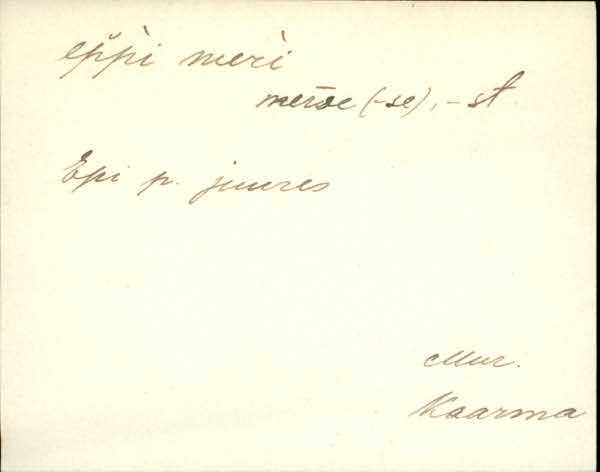 eppi meri
merде (-se), -st
Epi p. juures
Mur.
Kaarma